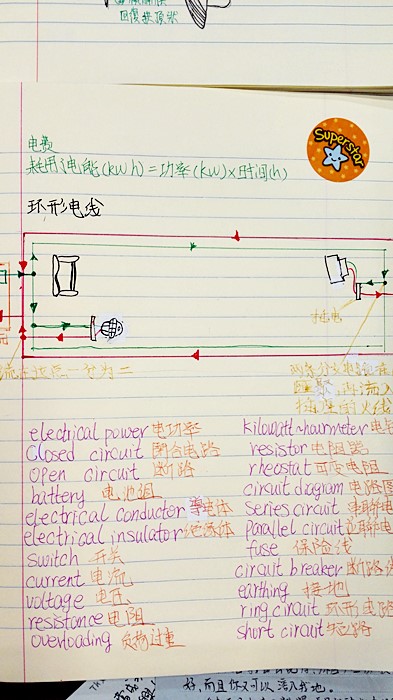 回復其原狀
Superstar
电费
耗用电能(kWh)=功率(kW)×时间(h)
环形电线
插电
流在這点一分为二
两条分支电流在
再流入
electrical power 电功率
closed circuit 閉合电路
open circuit 断路
battery 电池组
electrical conductor 导电体
electrical insulator 绝缘体
switch 开关
current 电流
voltage 电压
resistance 电阻
overloading 负荷过重
kilowatt-hourmeter 电
resistor 电阻器
rheostat 可变电阻
circuit diagram 电路图
series circuit 串聯电
parallel circuit 並聯电
fuse 保险线
circuit breaker 断路
earthing 接地
ring circuit 环形电路
short circuit 短路
好,而且你又可以溶入我地。